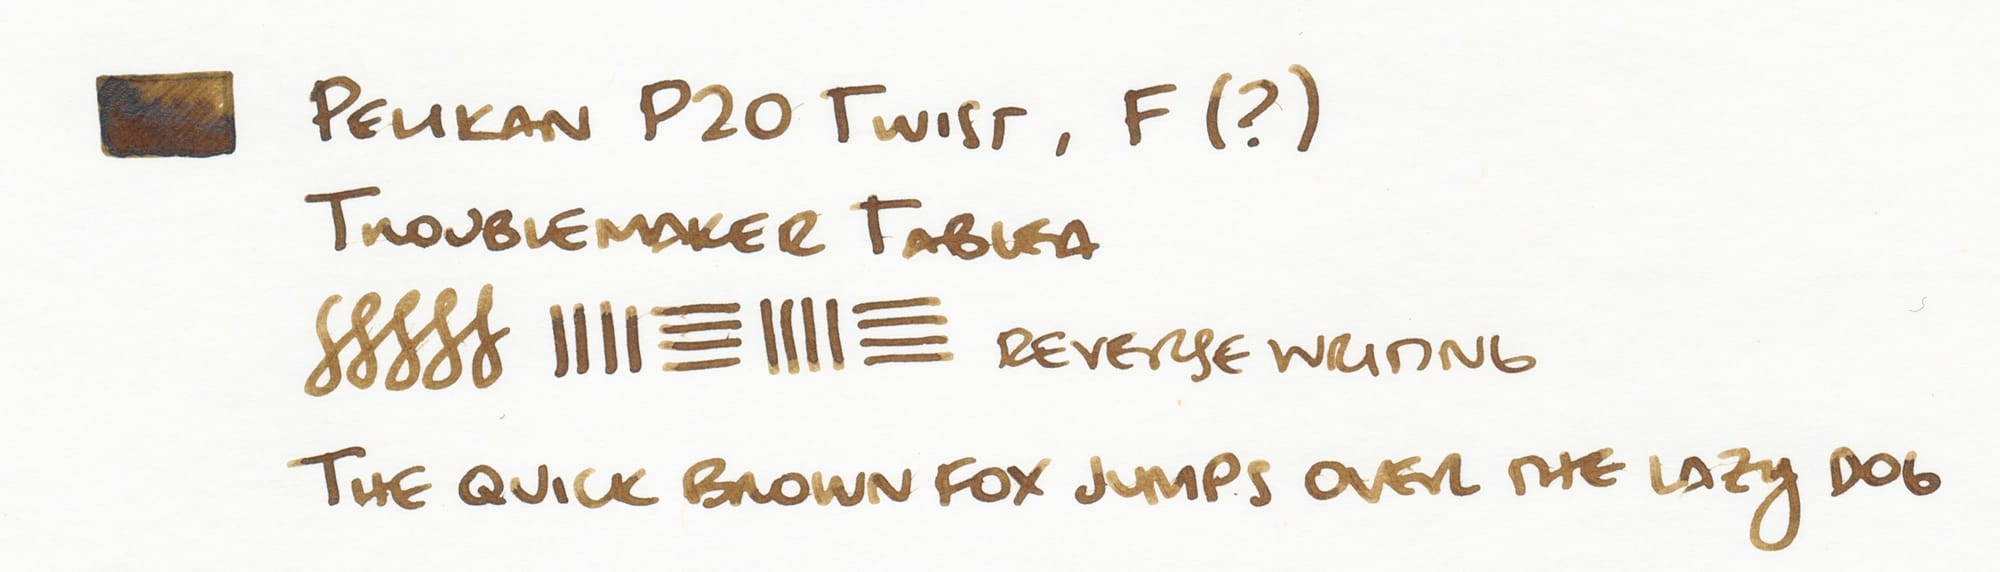 PELIKAN P20 TWIST, F (?)
TROUBLEMAKER TABLEA
REVERSE WRITING
THE QUICK BROWN FOX JUMPS OVER THE LAZY DOG